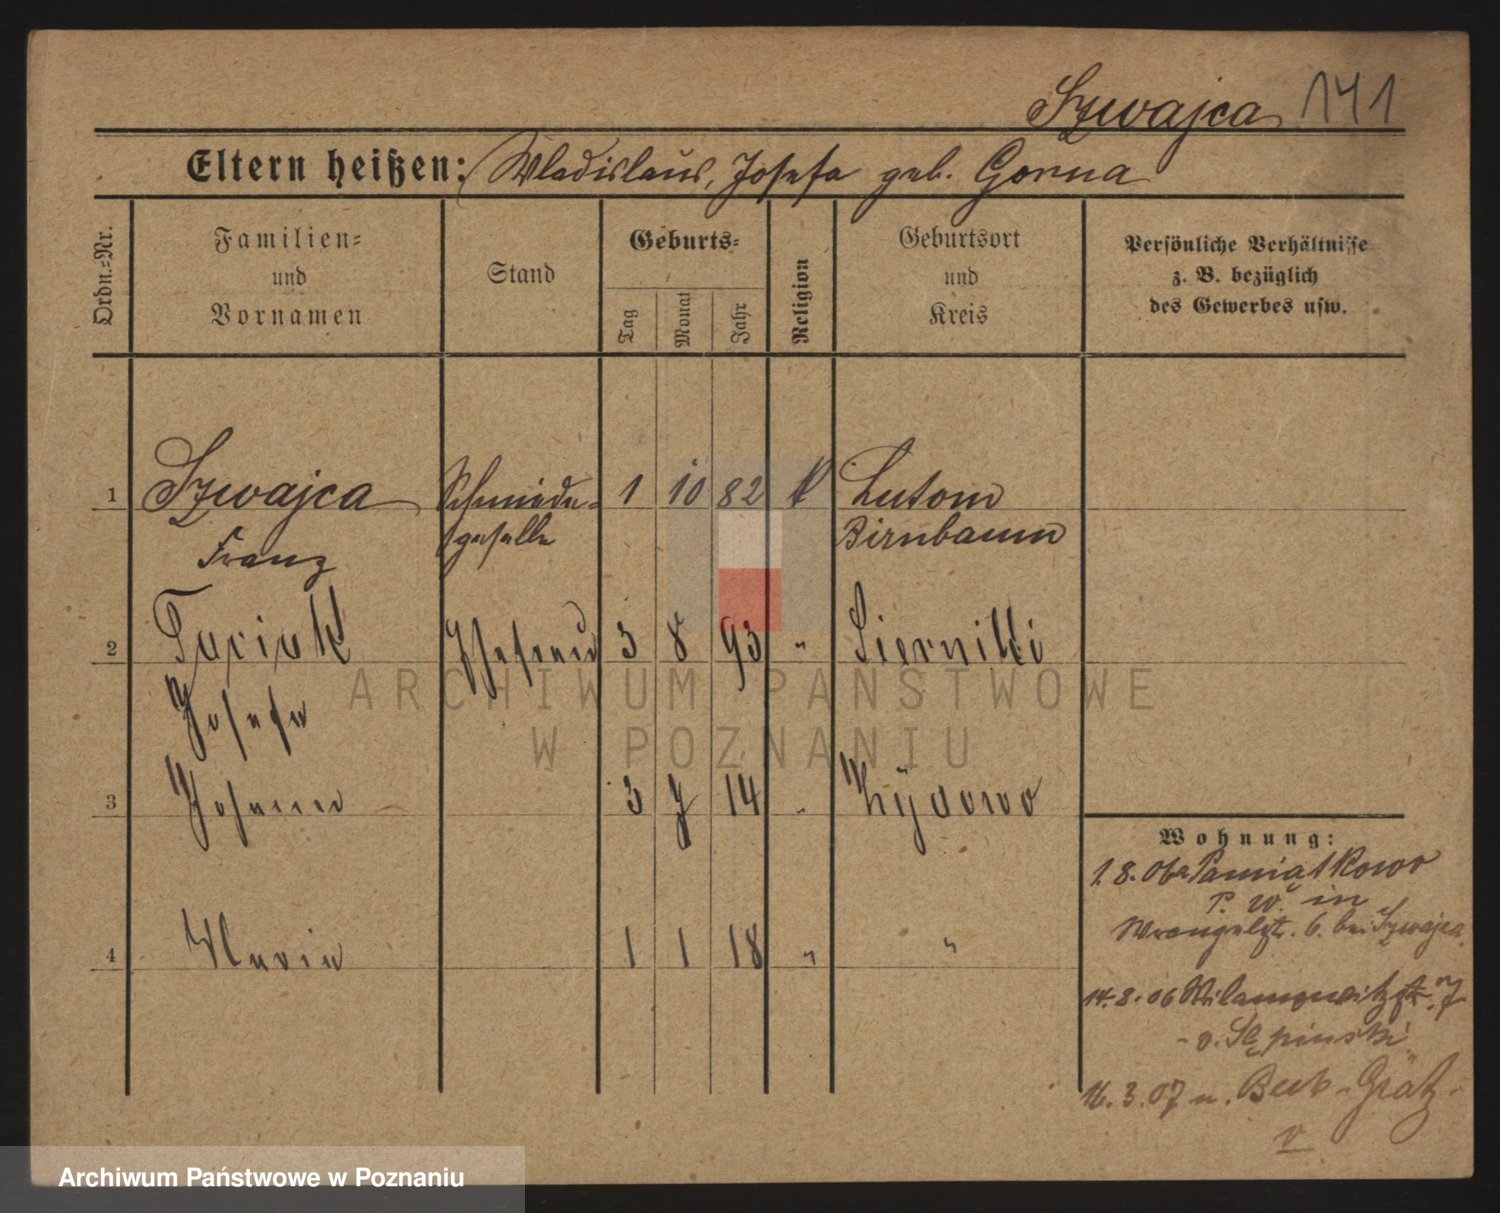 Szwajca 141
Eltern heißen: Wladislaus, Josefa geb. Gorna
Ordn.-Nr.
Familien- und Vornamen
Stand
Geburts-
Tag
Monat
Jahr
Religion
Geburtsort und Kreis
Persönliche Verhältnisse
z. B. bezüglich
des Gewerbes usw.
1 Szwajca Schmiede- 1 10 82 k Lutom
Franz geselle Birnbaum
2 Ehefrau 3 8 93 " Siernikki
Josefa
3 Johann 3 7 14 "
4 Maria 1 1 18 " "
Wohnung:
1.8.06 Pamiątkowo
P. W. in
Wrangelstr. 6. bei Szwajca.
14.8.06 Wilamowitzstr. 7
- v. Slepinski
16.3.07 n. Buk-Grätz-
v
ARCHIWUM PAŃSTWOWE
W POZNANIU
Archiwum Państwowe w Poznaniu